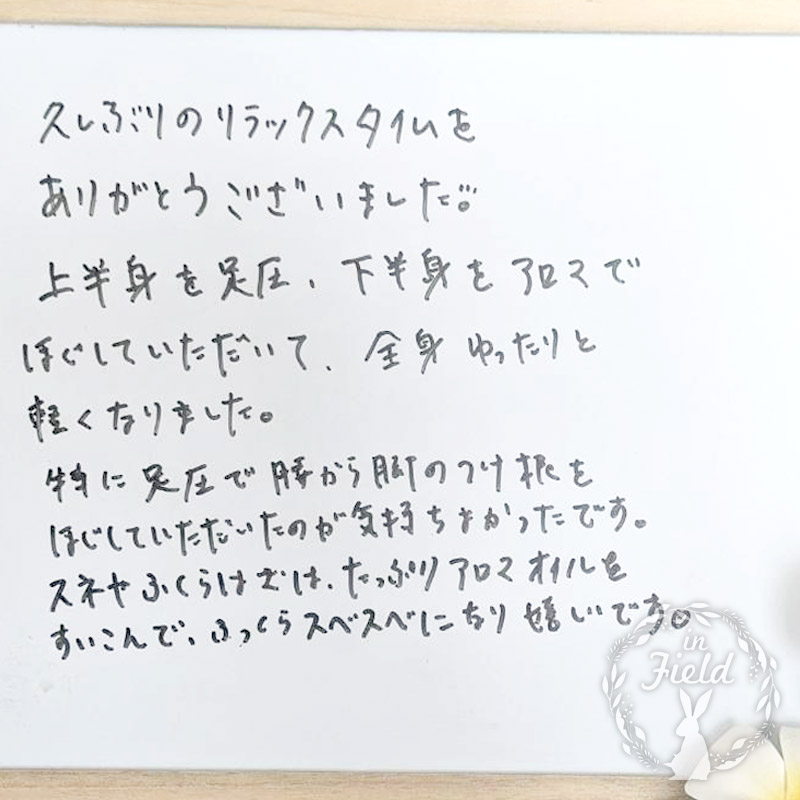 久しぶりのリラックスタイムを
ありがとうございました。
上半身を足圧、下半身をアロマで
ほぐしていただいて、全身ゆったりと
軽くなりました。
特に足圧で腰から脚のつけ根を
ほぐしていただいたのが気持ちよかったです。
スネやふくらはぎは、たっぷりアロマオイルを
すいこんで、ふっくらスベスベになり嬉しいです。
in
Field